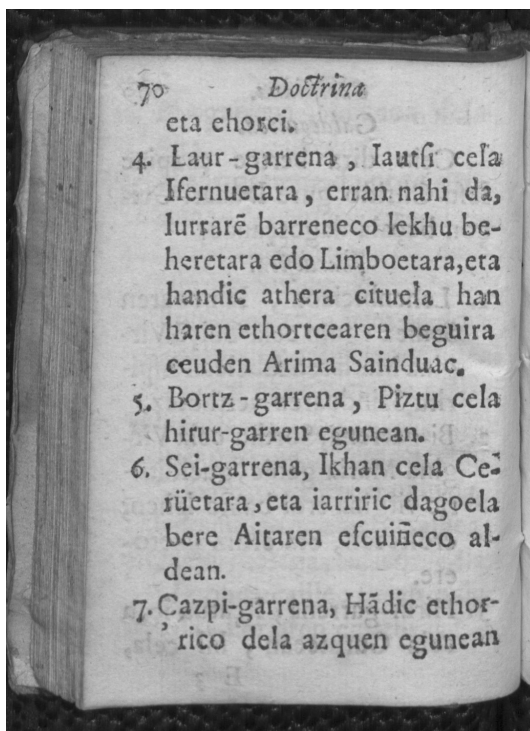 70 Doctrina
eta ehorci.
4. Laur-garrena, Iautſi ceſa
Ifernuetara, erran nahi da,
lurrarẽ barreneco lekhu be-
heretara edo Limboetara, eta
handic athera cituela han
haren ethortcearen beguira
ceuden Arima Sainduac.
5. Bortz-garrena, Piztu cela
hirur-garren egunean.
6. Sei-garrena, Ikhan cela Ce-
rüetara, eta iarriric dagoela
bere Aitaren eſcuiñeco al-
dean.
7. Cazpi-garrena, Hãdic ethor-
rico dela azquen egunean